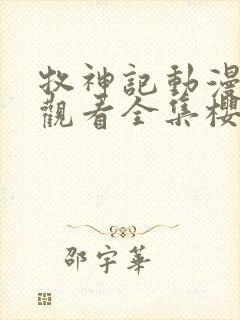 牧神記動漫
觀看全集櫻
邵宇華